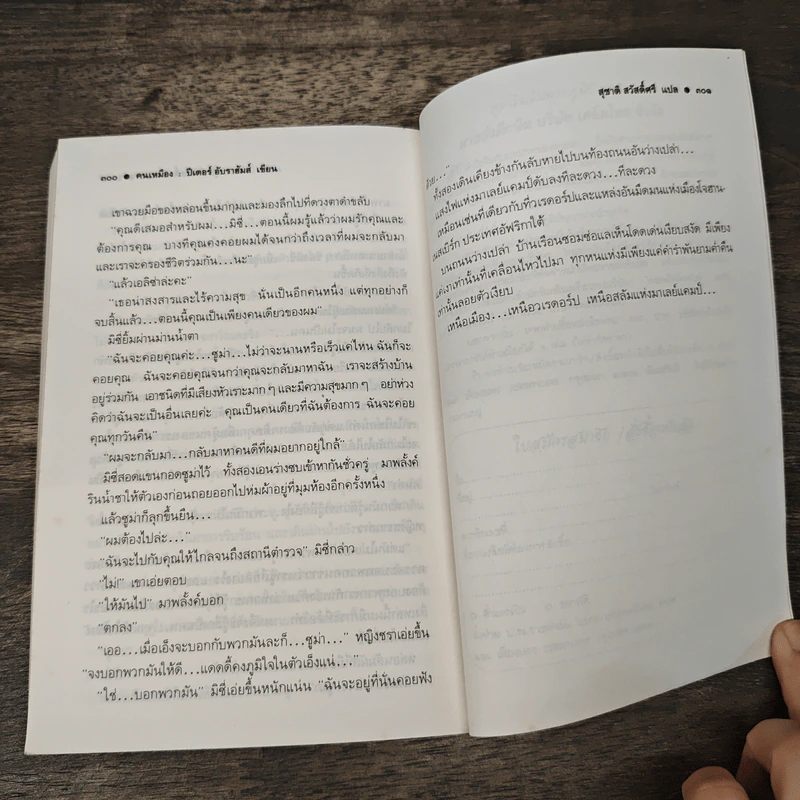 ๓๐๐ ● คนเหมือง : ปีเตอร์ อับราฮัมส์ เขียน
เขาฉวยมือของหล่อนขึ้นมากุมและมองลึกไปที่ดวงตาดำขลับ
"คุณดีเสมอสำหรับผม...มิซี่...ตอนนี้ผมรู้แล้วว่าผมรักคุณและ
ต้องการคุณ บางทีคุณคงคอยผมได้จนกว่าถึงเวลาที่ผมจะกลับมา
และเราจะครองชีวิตร่วมกัน...นะ"
"แล้วเอลิซ่าล่ะคะ"
"เธอน่าสงสารและไร้ความสุข นั่นเป็นอีกคนหนึ่ง แต่ทุกอย่างก็
จบสิ้นแล้ว...ตอนนี้คุณเป็นเพียงคนเดียวของผม"
มิซี่ยิ้มผ่านม่านน้ำตา
"ฉันจะคอยคุณค่ะ...ซูม่า...ไม่ว่าจะนานหรือเร็วแค่ไหน ฉันก็จะ
คอยคุณ ฉันจะคอยคุณจนกว่าคุณจะกลับมาหาฉัน เราจะสร้างบ้าน
อยู่ร่วมกัน เอาชนิดที่มีเสียงหัวเราะมาก ๆ และมีความสุขมาก ๆ อย่าห่วง
คิดว่าฉันจะเป็นอื่นเลยค่ะ คุณเป็นคนเดียวที่ฉันต้องการ ฉันจะคอย
คุณทุกวันคืน"
"ผมจะกลับมา...กลับมาหาคนดีที่ผมอยากอยู่ใกล้"
มิซี่สอดแขนกอดซูม่าไว้ ทั้งสองเอนร่างซบเข้าหากันชั่วครู่ มาพลั้งค์
รินน้ำชาให้ตัวเองก่อนถอยออกไปห่มผ้าอยู่ที่มุมห้องอีกครั้งหนึ่ง
แล้วซูม่าก็ลุกขึ้นยืน...
"ผมต้องไปล่ะ..."
"ฉันจะไปกับคุณให้ไกลจนถึงสถานีตำรวจ" มิซี่กล่าว
"ไม่!" เขาเอ่ยตอบ
"ให้มันไป" มาพลั้งค์บอก
"ตกลง"
"เออ...เมื่อเอ็งจะบอกกับพวกมันละก็...ซูม่า..." หญิงชราเอ่ยขึ้น
"จงบอกพวกมันให้ดี...แดดดี้คงภูมิใจในตัวเอ็งแน่..."
"ใช่...บอกพวกมัน" มิซี่เอ่ยขึ้นหนักแน่น "ฉันจะอยู่ที่นั่นคอยฟัง
สุชาติ สวัสดิ์ศรี แปล ● ๓๐๑
ด้วย..."
ทั้งสองเดินเคียงข้างกันลับหายไปบนท้องถนนอันว่างเปล่า...
แสงไฟแห่งมาเลย์แคมป์ดับลงทีละดวง...ทีละดวง
เหมือนเช่นที่เดียวกับที่วเรดอร์ปและแหล่งอันมืดมนแห่งเมืองโจฮาน-
เนสเบิร์ก ประเทศอัฟริกาใต้
บนถนนว่างเปล่า บ้านเรือนซอมซ่อแลเห็นโดดเด่นเงียบสงัด มีเพียง
แค่เงาเท่านั้นที่เคลื่อนไหวไปมา ทุกหนแห่งมีเพียงแค่คำรำพันยามค่ำคืน
เท่านั้นลอยตัวเงียบ
เหนือเมือง...เหนือวเรดอร์ป เหนือสลัมแห่งมาเลย์แคมป์...